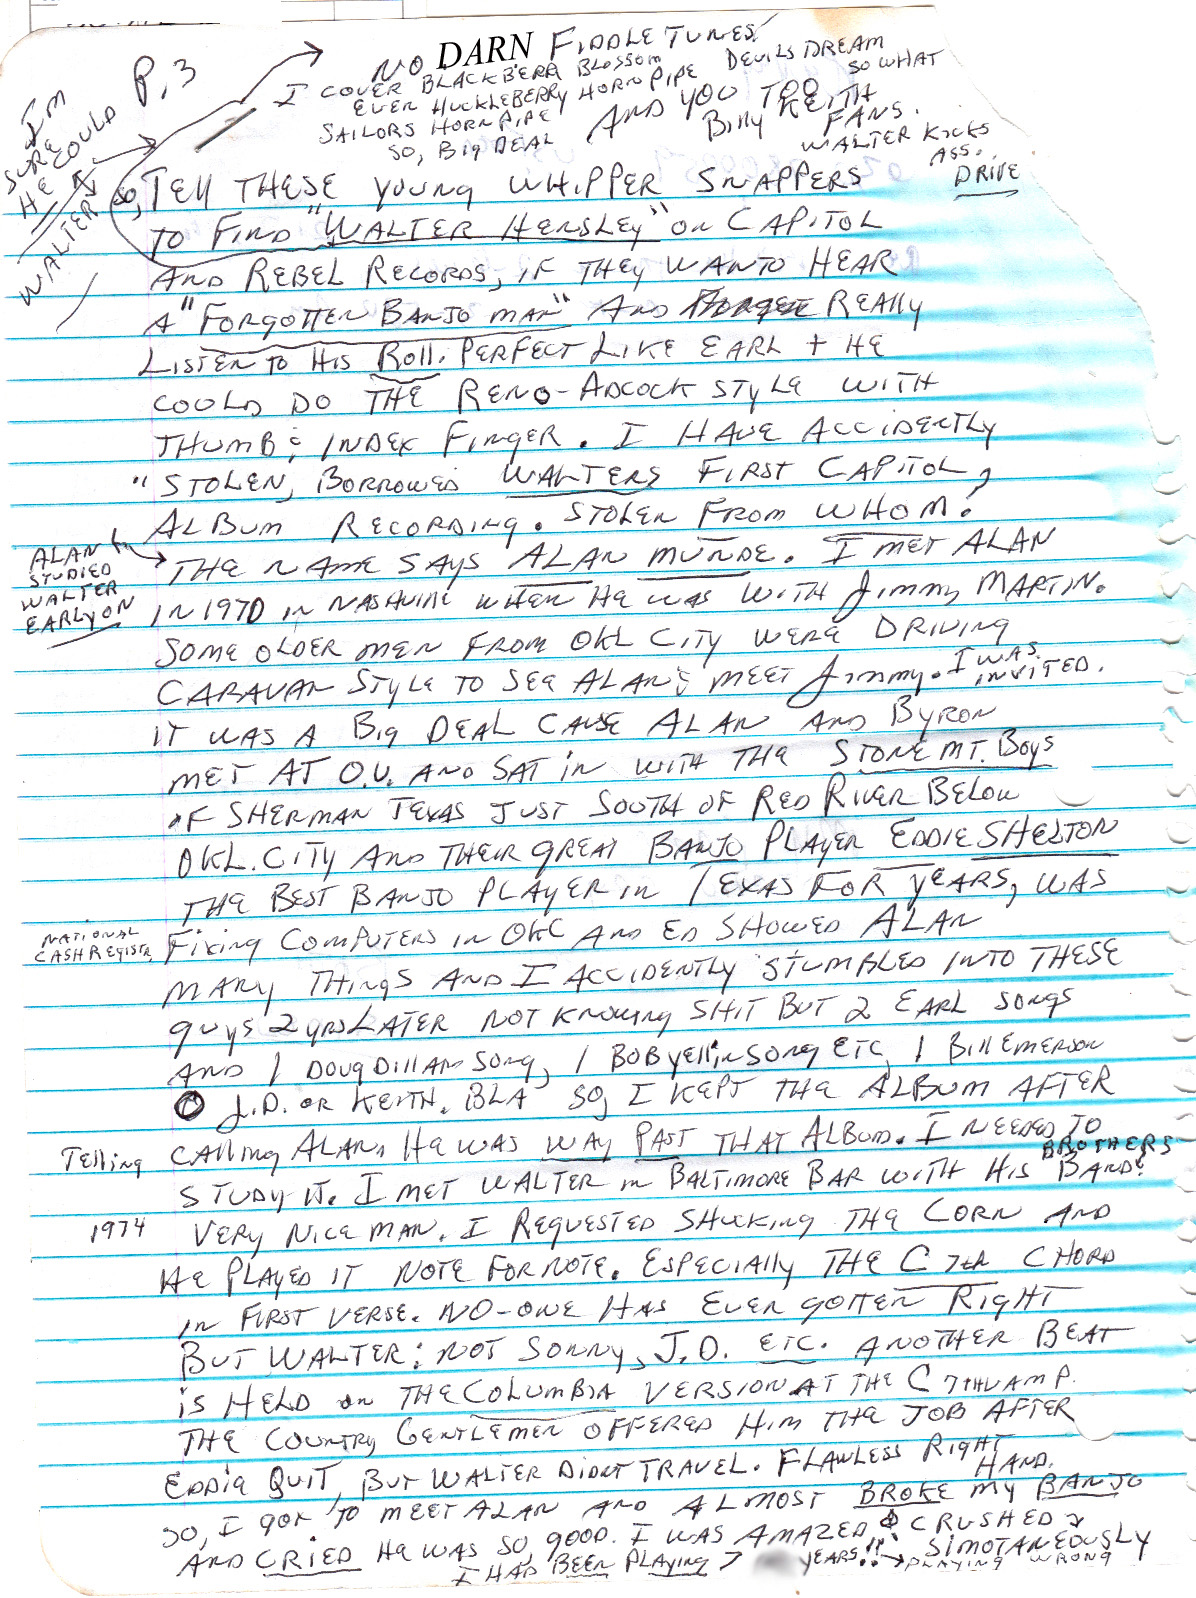 P.3
NO DARN FIDDLE TUNES!
I COVER BLACKBERR BLOSSOM
DEVILS DREAM
EVEN HUCKLEBERRY HORNPIPE
SO WHAT
SAILORS HORNPIPE
AND YOU TOO
SO, BIG DEAL
BILLY KEITH
FANS.
WALTER KICKS
ASS.
DRIVE
I'M
SURE
HE COULD
WALTER
SO, TELL THESE YOUNG WHIPPER SNAPPERS
TO FIND "WALTER HENSLEY" ON CAPITOL
AND REBEL RECORDS, IF THEY WANTO HEAR
A "FORGOTTEN BANJO MAN" AND REALLY
LISTEN TO HIS ROLL. PERFECT LIKE EARL + HE
COULD DO THE RENO-ADCOCK STYLE WITH
THUMB & INDEX FINGER. I HAVE ACCIDENTLY
"STOLEN, BORROWED WALTERS FIRST CAPITOL,
ALBUM RECORDING. STOLEN FROM WHOM?
ALAN
STUDIED
WALTER
EARLY ON
THE NAME SAYS ALAN MUNDE. I MET ALAN
IN 1970 IN NASHVILLE WHEN HE WAS WITH JIMMY MARTIN.
SOME OLDER MEN FROM OKL CITY WERE DRIVING
CARAVAN STYLE TO SEE ALAN & MEET JIMMY. I WAS INVITED.
IT WAS A BIG DEAL CAUSE ALAN AND BYRON
MET AT O.U. AND SAT IN WITH THE STONE MT. BOYS
OF SHERMAN TEXAS JUST SOUTH OF RED RIVER BELOW
OKL. CITY AND THEIR GREAT BANJO PLAYER EDDIE SHELTON
THE BEST BANJO PLAYER IN TEXAS FOR YEARS, WAS
NATIONAL
CASH REGISTR.
FIXING COMPUTERS IN OKC AND ED SHOWED ALAN
MANY THINGS AND I ACCIDENTLY STUMBLED INTO THESE
GUYS 2 YRS LATER NOT KNOWING SHIT BUT 2 EARL SONGS
AND 1 DOUG DILLARD SONG, 1 BOB YELLIN SONG ETC, 1 BILL EMERSON
J.D. OR KEITH. BLA SO, I KEPT THE ALBUM AFTER
TELLING CALLING ALAN. HE WAS WAY PAST THAT ALBUM. I NEEDED TO
STUDY IT. I MET WALTER IN BALTIMORE BAR WITH HIS BROTHERS BAND.
1974 VERY NICE MAN. I REQUESTED SHUCKING THE CORN AND
HE PLAYED IT NOTE FOR NOTE. ESPECIALLY THE C 7TH CHORD
IN FIRST VERSE. NO-ONE HAS EVER GOTTEN RIGHT
BUT WALTER; NOT SONNY, J.D. ETC. ANOTHER BEAT
IS HELD ON THE COLUMBIA VERSION AT THE C 7TH VAMP.
THE COUNTRY GENTLEMEN OFFERED HIM THE JOB AFTER
EDDIE QUIT, BUT WALTER DIDNT TRAVEL. FLAWLESS RIGHT HAND.
SO, I GOT TO MEET ALAN AND ALMOST BROKE MY BANJO
AND CRIED HE WAS SO, GOOD. I WAS AMAZED & CRUSHED SIMOTANEOUSLY
I HAD BEEN PLAYING YEARS!! PLAYING WRONG